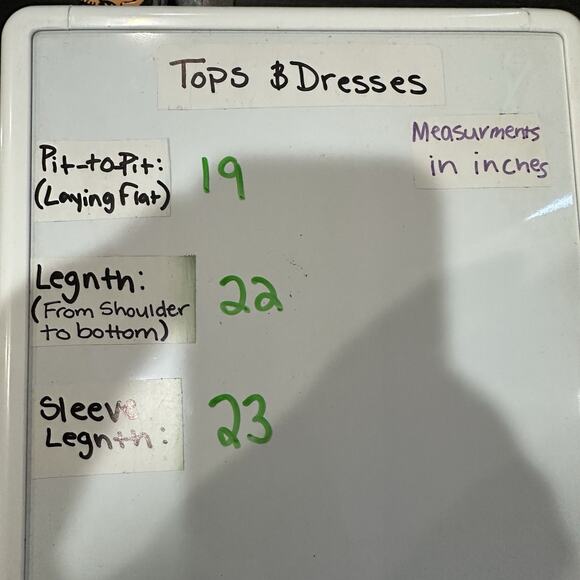 Tops & Dresses
Measurments
in inches
Pit-to-Pit: 19
(Laying Flat)
Legnth: 22
(From Shoulder
to bottom)
Sleeve
Legnth: 23